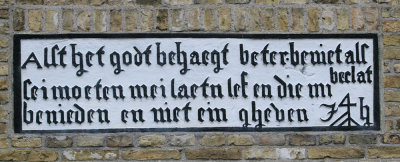 Allst het godt behaegt beter beniet als beclat
sei moeten mei laetn lef en die mi
benieden en niet ein gheven